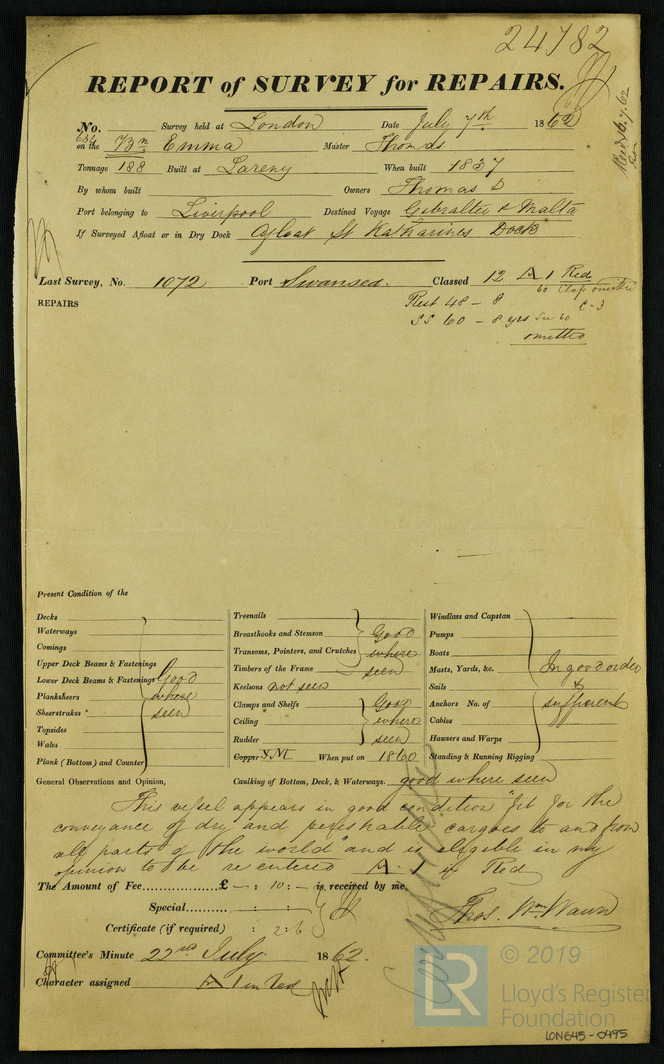 24782
REPORT of SURVEY for REPAIRS.
No. Survey held at London Date July 7th 1862
on the Bn Emma Master Thomas
Tonnage 188 Built at When built 1837
By whom built Owners Thomas D
Port belonging to Liverpool Destined Voyage Gibralter & Malta
If Surveyed Afloat or in Dry Dock Afloat St Katharines Dock
Last Survey, No. 1072 Port Swansea. Classed 12 A 1 Red
60 Class omitted
REPAIRS Rest 48 - 8 C-3
SS 60 - 8 yrs
omitted
Present Condition of the
Decks
Waterways
Comings
Upper Deck Beams & Fastenings
Lower Deck Beams & Fastenings Good
Planksheers where
Sheerstrakes seen
Topsides
Wales
Plank (Bottom) and Counter
Treenails
Breasthooks and Stemson Good
Transoms, Pointers, and Crutches where
Timbers of the Frame seen
Keelsons not seen
Clamps and Shelfs Good
Ceiling where
Rudder seen
Copper YM When put on 1860
Windlass and Capstan
Pumps
Boats
Masts, Yards, &c. In good order
Sails &
Anchors No. of sufficient
Cables
Hawsers and Warps
Standing & Running Rigging
General Observations and Opinion, Caulking of Bottom, Deck, & Waterways. good where seen
This vessel appears in good condition "fit for the
conveyance of dry and perishable cargoes to and from
all parts of the world" and is eligible in my
opinion to be re entered A.1 in Red
The Amount of Fee £ - : 10 : - is received by me,
Special : :
Thos. Wm Wawn
Certificate (if required) : 2 : 6
Committee's Minute 22nd July 1862.
Character assigned A 1 in Red
© 2019
LR
Lloyd's Register
Foundation
LON645-0495